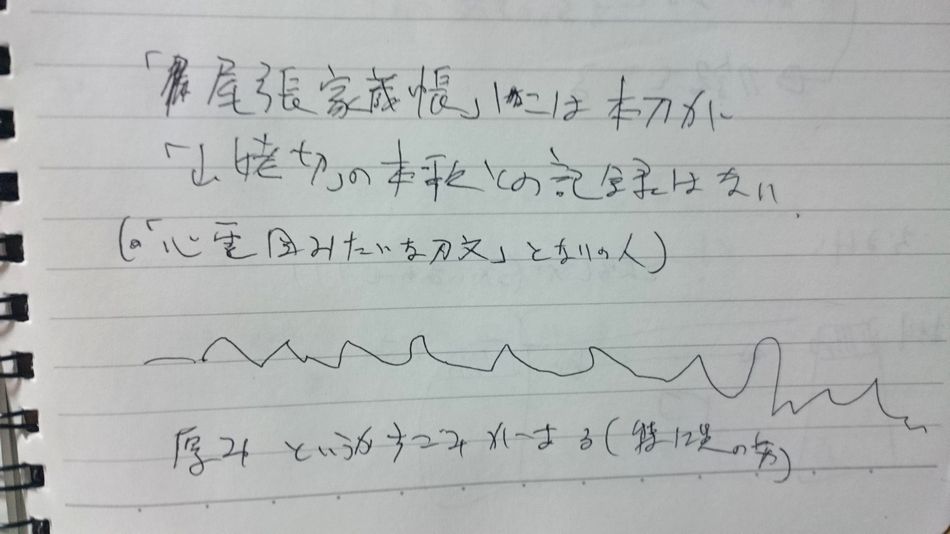 「尾張家蔵帳」には本刀が
「山姥切」の本歌との記録はない
(「心電図みたいな刃文」となりの人)
厚みというかすごみがある(特に の方)